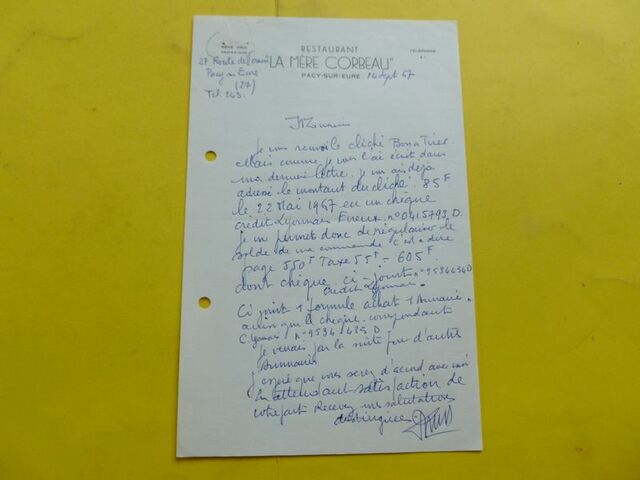 RESTAURANT
"LA MÈRE CORBEAU"
PACY-SUR-EURE
TÉLÉPHONE
27 Route de
Pacy s Eure
(27)
Tel. 243.
14 Sept 67
Monsieur
Je vous renvoie le cliché Bon a Tirer
Mais comme je vous l'ai écrit dans
ma derniere lettre. je vous ai deja
adressé le montant du cliché. 85F
le 22 Mai 1967 en un chèque
crédit Lyonnais Evreux n° 0415793 D.
Je me permet donc de régulariser le
solde de ma commande c'est a dire
page 550F Taxe 55F = 605F.
dont chèque. ci-joint n° 9534434 D
Credit Lyonnais.
Ci joint 1 formule achat 1 Annuaire.
ainsi que le chèque. correspondant
C. Lyonnais n° 9534435 D
Je verrais par la suite pour d'autres
Annuaires
J'espère que vous serez d'accord avec moi
En attendant satisfaction de
votre part Recevez mes salutations
distinguées.